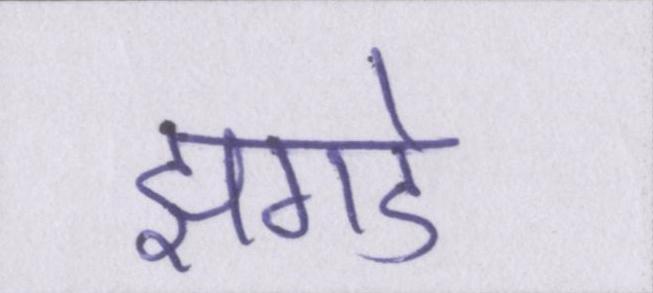 झगडे